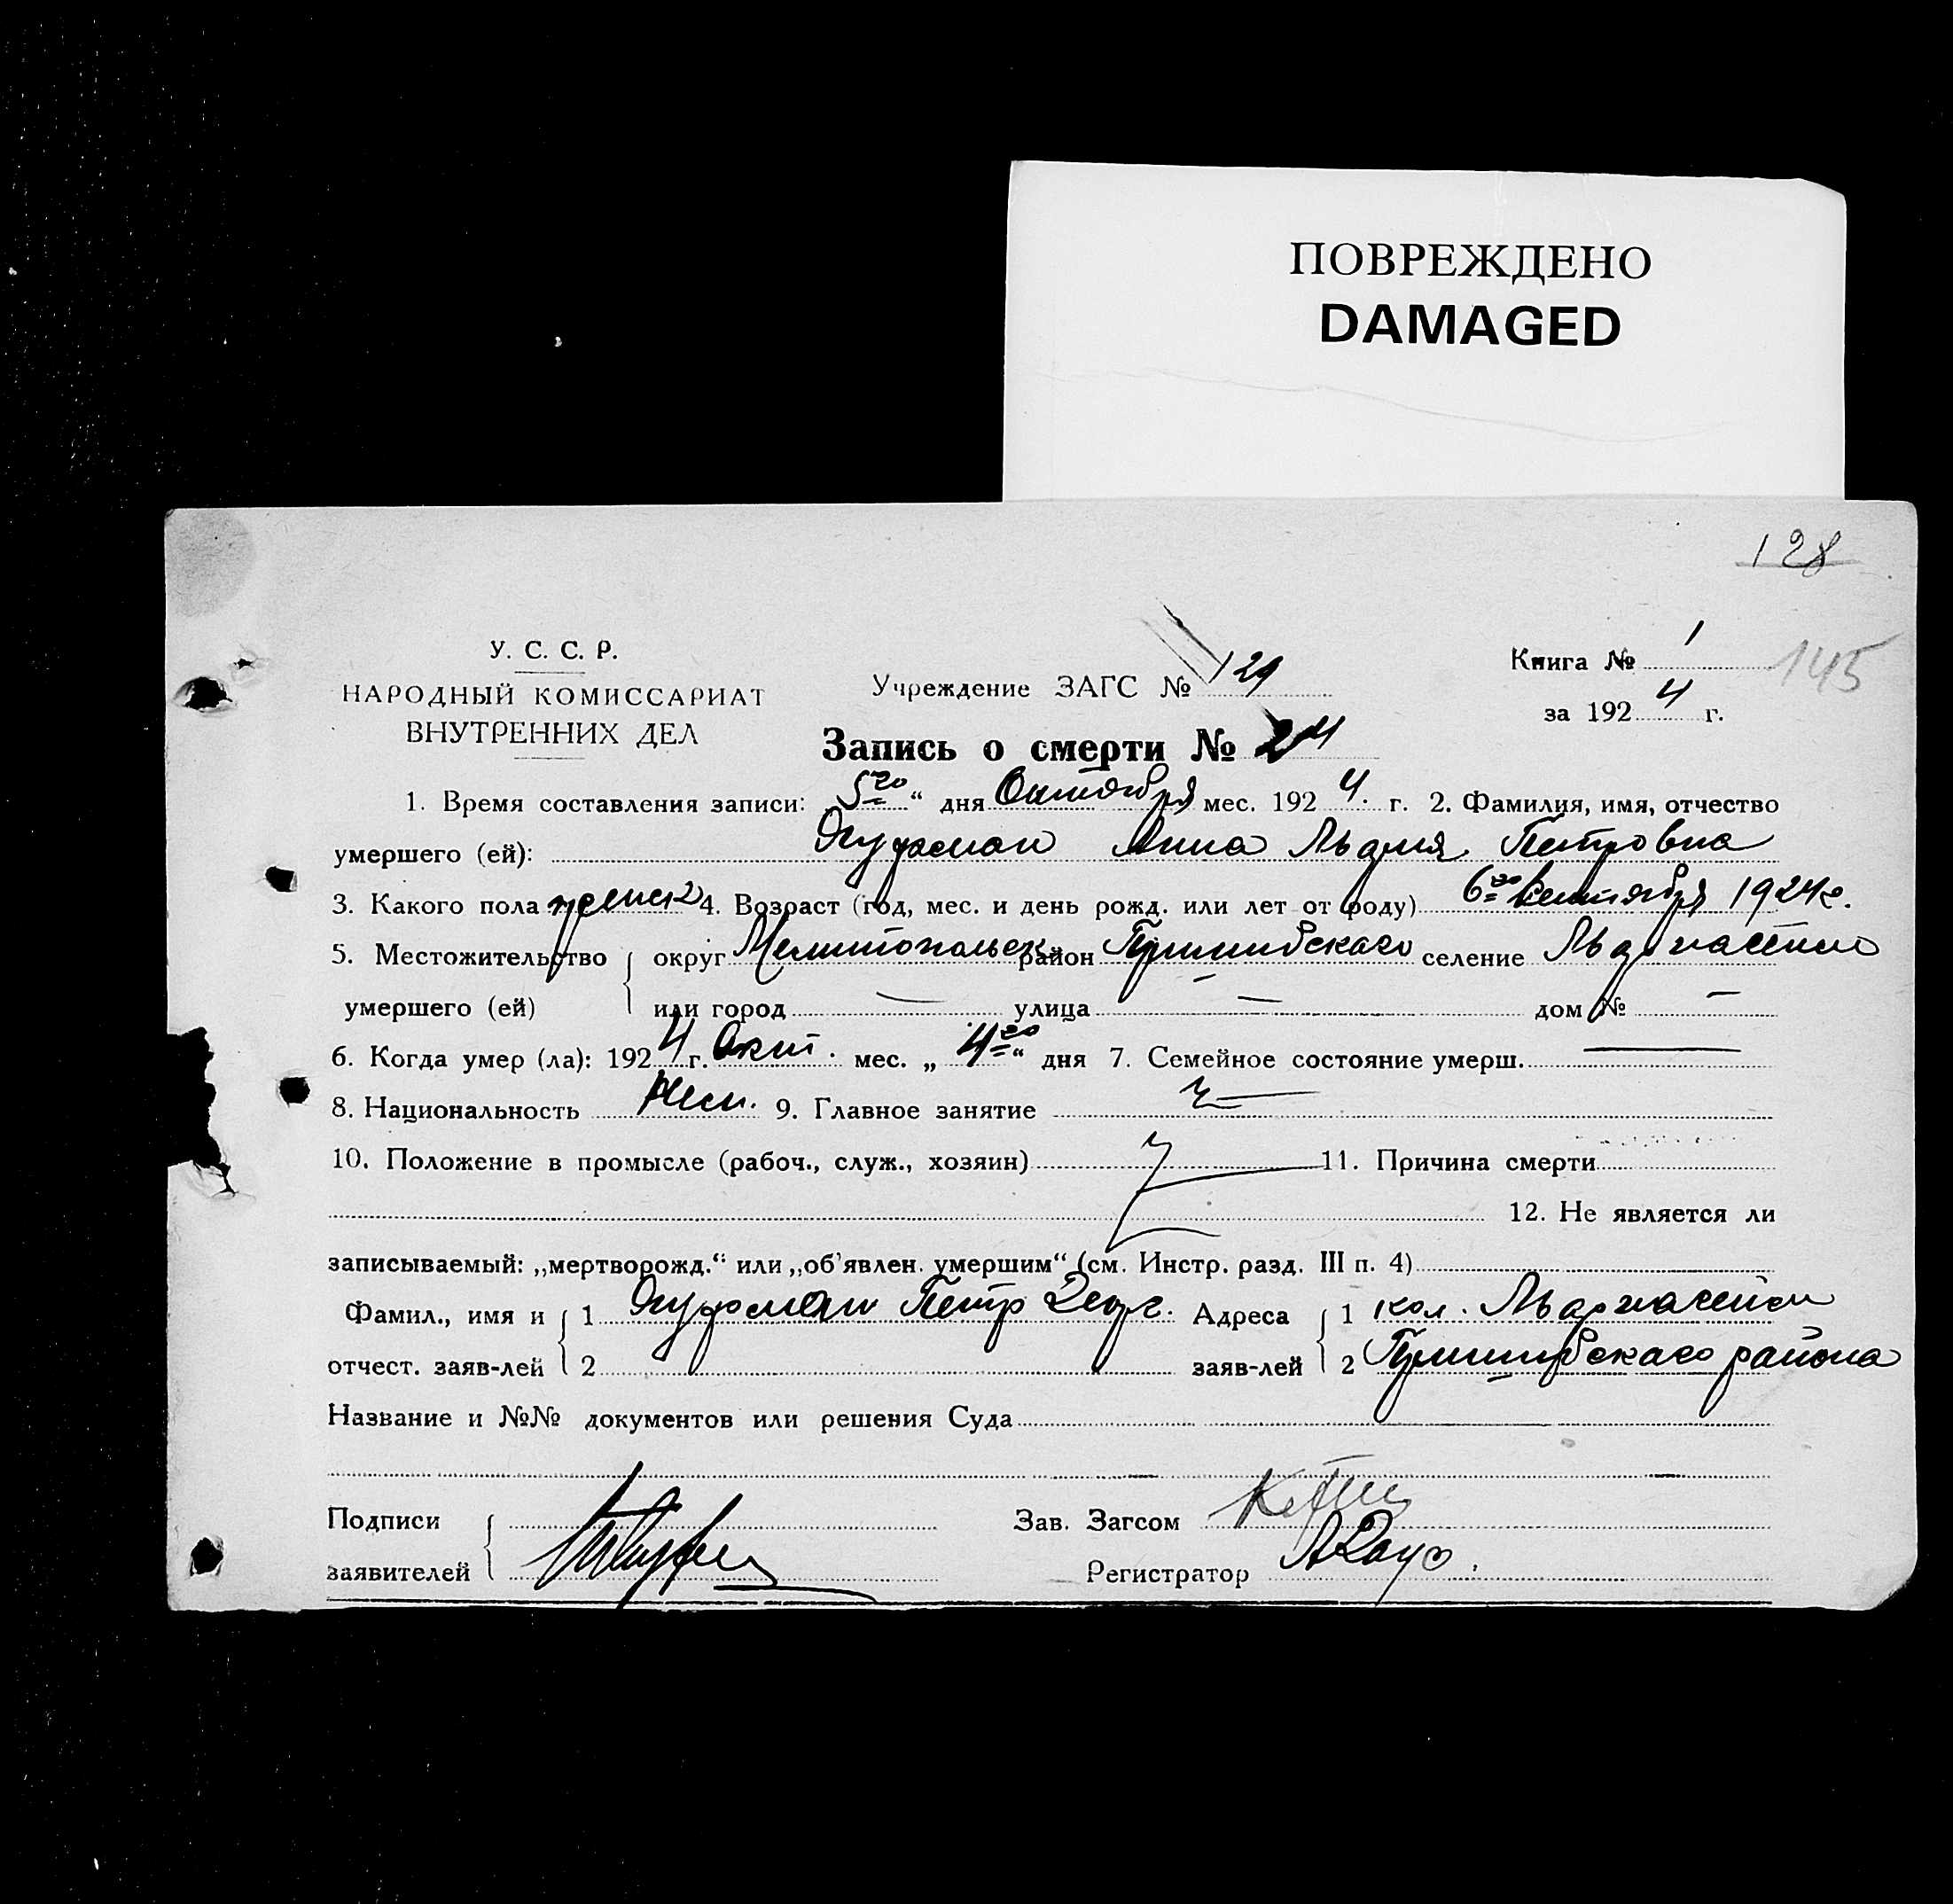 ПОВРЕЖДЕНО
DAMAGED
128
У. С. С. Р.
НАРОДНЫЙ КОМИССАРИАТ
ВНУТРЕННИХ ДЕЛ
Учреждение ЗАГС № 129
Книга № 1
145
за 1924 г.
Запись о смерти № 24
1. Время составления записи: 5го “ дня Октября мес. 1924. г. 2. Фамилия, имя, отчество
умершего (ей): Анна Петровна
3. Какого пола женск 4. Возраст (год, мес. и день рожд. или лет от роду) 6го Сентября 1924г.
5. Местожительство округ Мелитопольск. район селение
умершего (ей) или город — улица — дом № —
6. Когда умер (ла): 1924 г. Окт. мес. „ 4го “ дня 7. Семейное состояние умерш. —
8. Национальность Нем. 9. Главное занятие —
10. Положение в промысле (рабоч., служ., хозяин) 11. Причина смерти
12. Не является ли
записываемый: „мертворожд.“ или „об’явлен. умершим“ (см. Инстр. разд. III п. 4)
Фамил., имя и 1 Петр Адреса 1 кол.
отчест. заяв-лей 2 заяв-лей 2 района
Название и №№ документов или решения Суда
Подписи Зав. Загсом
заявителей Регистратор